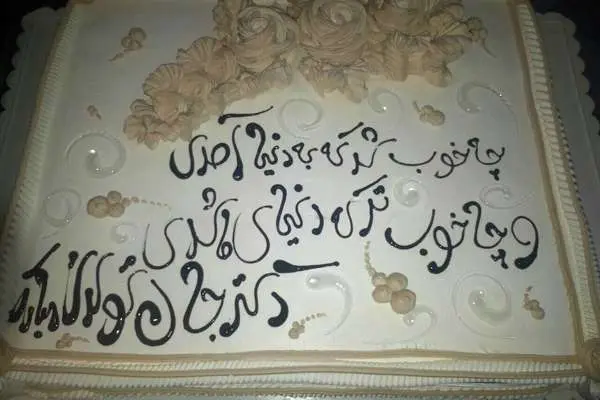 چه خوب شد که به دنیا آمدی
و چه خوب تر که دنیای ما شدی
دکتر جان تولدت مبارک